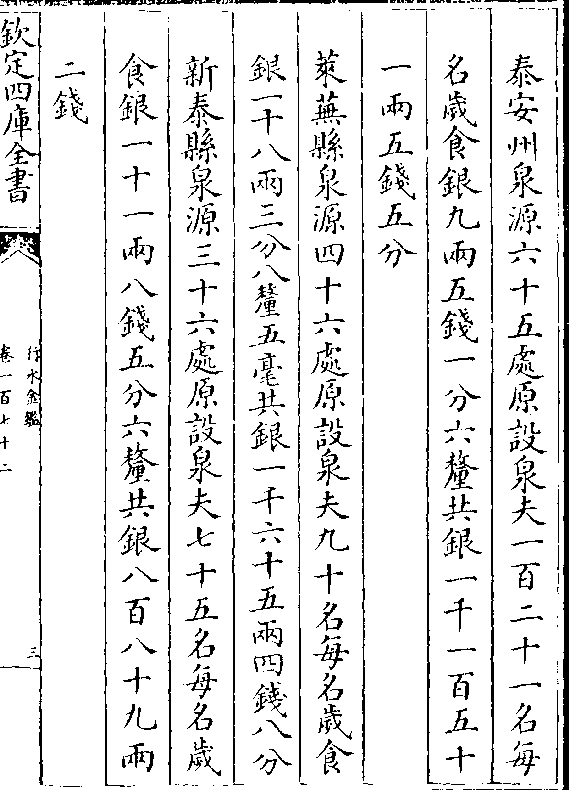 泰安州泉源六十五處原設泉夫一百二十一名每
名歲食銀九兩五錢一分六釐共銀一千一百五十
一兩五錢五分
萊蕪縣泉源四十六處原設泉夫九十名每名歲食
銀一十八兩三分八釐五毫共銀一千六十五兩四錢八分
新泰縣泉源三十六處原設泉夫七十五名每名歲
食銀一十一兩八錢五分六釐共銀八百八十九兩
二錢
欽定四庫全書
行水金鑑
卷一百七十二
三